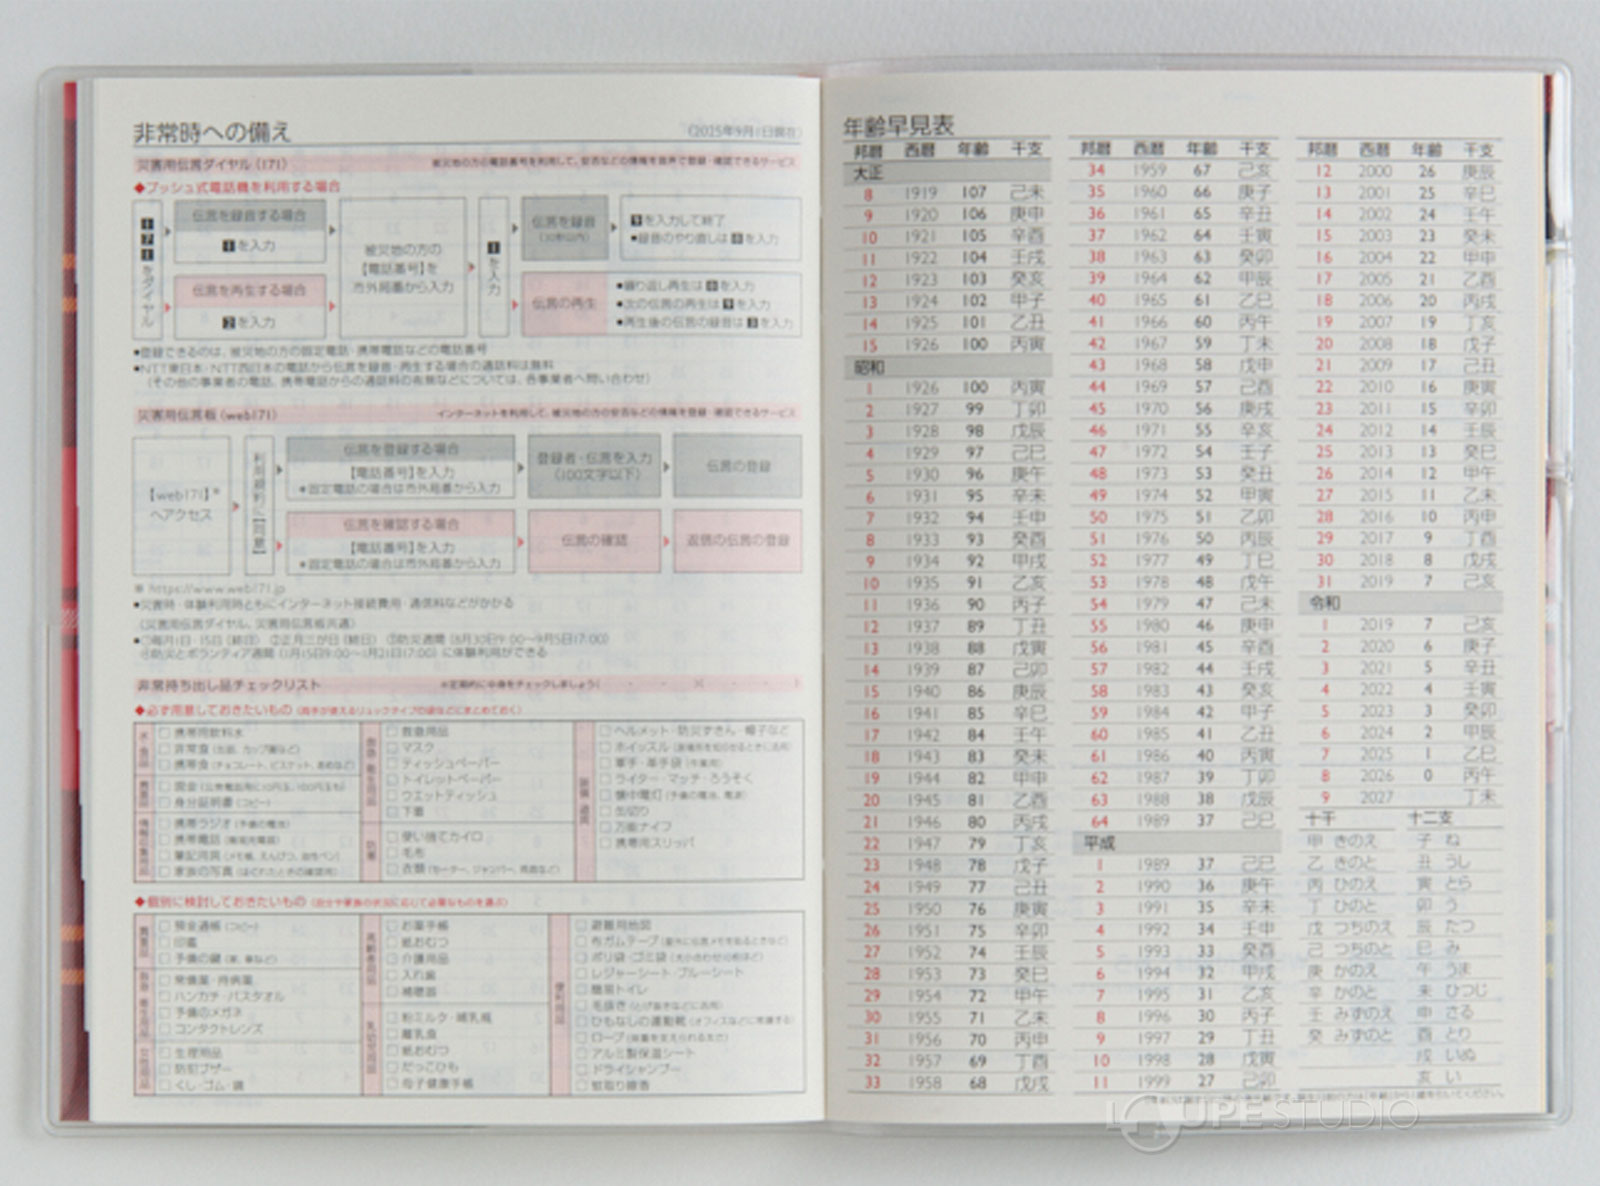 非常時への備え
(2025年9月1日現在)
災害用伝言ダイヤル(171) 被災地の方の電話番号を利用して、安否などの情報を音声で登録・確認できるサービス
◆プッシュ式電話機を利用する場合
171をダイヤル
伝言を録音する場合
1を入力
伝言を再生する場合
2を入力
被災地の方の
【電話番号】を
市外局番から入力
1を入力
伝言を録音
(30秒以内)
9を入力して終了
●録音のやり直しは8を入力
伝言の再生
●繰り返し再生は8を入力
●次の伝言の再生は9を入力
●再生後の伝言の録音は3を入力
●登録できるのは、被災地の方の固定電話・携帯電話などの電話番号
●NTT東日本・NTT西日本の電話から伝言を録音・再生する場合の通話料は無料
(その他の事業者の電話、携帯電話からの通話料の有無などについては、各事業者へ問い合わせ)
災害用伝言板(web171) インターネットを利用して、被災地の方の安否などの情報を登録・確認できるサービス
【web171】※
へアクセス
利用規約に【同意】
伝言を登録する場合
【電話番号】を入力
●固定電話の場合は市外局番から入力
登録者・伝言を入力
(100文字以下)
伝言の登録
伝言を確認する場合
【電話番号】を入力
●固定電話の場合は市外局番から入力
伝言の確認
返信の伝言の登録
※ https://www.web171.jp
●災害時・体験利用時ともにインターネット接続費用・通信料などがかかる
《災害用伝言ダイヤル、災害用伝言板共通》
●①毎月1日・15日(終日) ②正月三が日(終日) ③防災週間(8月30日9:00〜9月5日17:00)
④防災とボランティア週間(1月15日9:00〜1月21日17:00)に体験利用ができる
非常持ち出し品チェックリスト ※定期的に中身をチェックしましょう
◆必ず用意しておきたいもの(両手が使えるリュックタイプの袋などにまとめておく)
水・食品
□携帯用飲料水
□非常食(缶詰、カップ麺など)
□携帯食(チョコレート、ビスケット、あめなど)
貴重品
□現金(公衆電話用に10円玉、100円玉も)
□身分証明書(コピー)
情報収集用品
□携帯ラジオ(予備の電池)
□携帯電話(
□筆記用具(メモ帳、えんぴつ、油性ペン)
□家族の写真(はぐれたときの確認用)
救急・衛生用品
□救急用品
□マスク
□ティッシュペーパー
□トイレットペーパー
□ウエットティッシュ
□下着
防寒
□使い捨てカイロ
□毛布
□衣類(セーター、ジャンパー、雨具など)
□ヘルメット・防災ずきん・帽子など
□ホイッスル(居場所を知らせるときに活用)
□軍手・革手袋(作業用)
□ライター・マッチ・ろうそく
□懐中電灯(予備の電池、電源)
□缶切り
□万能ナイフ
□携帯用スリッパ
◆個別に検討しておきたいもの(自分や家族の状況に応じて必要なものを選ぶ)
貴重品
□預金通帳(コピー)
□印鑑
□予備の鍵(家、車など)
救急・衛生用品
□常備薬・持病薬
□ハンカチ・バスタオル
□予備のメガネ
□コンタクトレンズ
女性用品
□生理用品
□防犯ブザー
□くし・ゴム・鏡
高齢者用品
□お薬手帳
□紙おむつ
□介護用品
□入れ歯
□補聴器
乳幼児用品
□粉ミルク・哺乳瓶
□離乳食
□紙おむつ
□だっこひも
□母子健康手帳
便利用品
□避難用地図
□布ガムテープ(屋外に伝言メモを貼るときなど)
□ポリ袋・ゴミ袋(大小合わせ10枚ほど)
□レジャーシート・ブルーシート
□簡易トイレ
□毛抜き(とげ抜きなどに活用)
□ひもなしの運動靴(オフィスなどに常備する)
□ロープ(体重を支えられる太さ)
□アルミ製保温シート
□ドライシャンプー
□蚊取り線香
年齢早見表
邦暦 西暦 年齢 干支
大正
8 1919 107 己未
9 1920 106 庚申
10 1921 105 辛酉
11 1922 104 壬戌
12 1923 103 癸亥
13 1924 102 甲子
14 1925 101 乙丑
15 1926 100 丙寅
昭和
1 1926 100 丙寅
2 1927 99 丁卯
3 1928 98 戊辰
4 1929 97 己巳
5 1930 96 庚午
6 1931 95 辛未
7 1932 94 壬申
8 1933 93 癸酉
9 1934 92 甲戌
10 1935 91 乙亥
11 1936 90 丙子
12 1937 89 丁丑
13 1938 88 戊寅
14 1939 87 己卯
15 1940 86 庚辰
16 1941 85 辛巳
17 1942 84 壬午
18 1943 83 癸未
19 1944 82 甲申
20 1945 81 乙酉
21 1946 80 丙戌
22 1947 79 丁亥
23 1948 78 戊子
24 1949 77 己丑
25 1950 76 庚寅
26 1951 75 辛卯
27 1952 74 壬辰
28 1953 73 癸巳
29 1954 72 甲午
30 1955 71 乙未
31 1956 70 丙申
32 1957 69 丁酉
33 1958 68 戊戌
邦暦 西暦 年齢 干支
34 1959 67 己亥
35 1960 66 庚子
36 1961 65 辛丑
37 1962 64 壬寅
38 1963 63 癸卯
39 1964 62 甲辰
40 1965 61 乙巳
41 1966 60 丙午
42 1967 59 丁未
43 1968 58 戊申
44 1969 57 己酉
45 1970 56 庚戌
46 1971 55 辛亥
47 1972 54 壬子
48 1973 53 癸丑
49 1974 52 甲寅
50 1975 51 乙卯
51 1976 50 丙辰
52 1977 49 丁巳
53 1978 48 戊午
54 1979 47 己未
55 1980 46 庚申
56 1981 45 辛酉
57 1982 44 壬戌
58 1983 43 癸亥
59 1984 42 甲子
60 1985 41 乙丑
61 1986 40 丙寅
62 1987 39 丁卯
63 1988 38 戊辰
64 1989 37 己巳
平成
1 1989 37 己巳
2 1990 36 庚午
3 1991 35 辛未
4 1992 34 壬申
5 1993 33 癸酉
6 1994 32 甲戌
7 1995 31 乙亥
8 1996 30 丙子
9 1997 29 丁丑
10 1998 28 戊寅
11 1999 27 己卯
邦暦 西暦 年齢 干支
12 2000 26 庚辰
13 2001 25 辛巳
14 2002 24 壬午
15 2003 23 癸未
16 2004 22 甲申
17 2005 21 乙酉
18 2006 20 丙戌
19 2007 19 丁亥
20 2008 18 戊子
21 2009 17 己丑
22 2010 16 庚寅
23 2011 15 辛卯
24 2012 14 壬辰
25 2013 13 癸巳
26 2014 12 甲午
27 2015 11 乙未
28 2016 10 丙申
29 2017 9 丁酉
30 2018 8 戊戌
31 2019 7 己亥
令和
1 2019 7 己亥
2 2020 6 庚子
3 2021 5 辛丑
4 2022 4 壬寅
5 2023 3 癸卯
6 2024 2 甲辰
7 2025 1 乙巳
8 2026 0 丙午
9 2027 丁未
十干 十二支
甲 きのえ 子 ね
乙 きのと 丑 うし
丙 ひのえ 寅 とら
丁 ひのと 卯 う
戊 つちのえ 辰 たつ
己 つちのと 巳 み
庚 かのえ 午 うま
辛 かのと 未 ひつじ
壬 みずのえ 申 さる
癸 みずのと 酉 とり
戌 いぬ
亥 い
LOUPE STUDIO